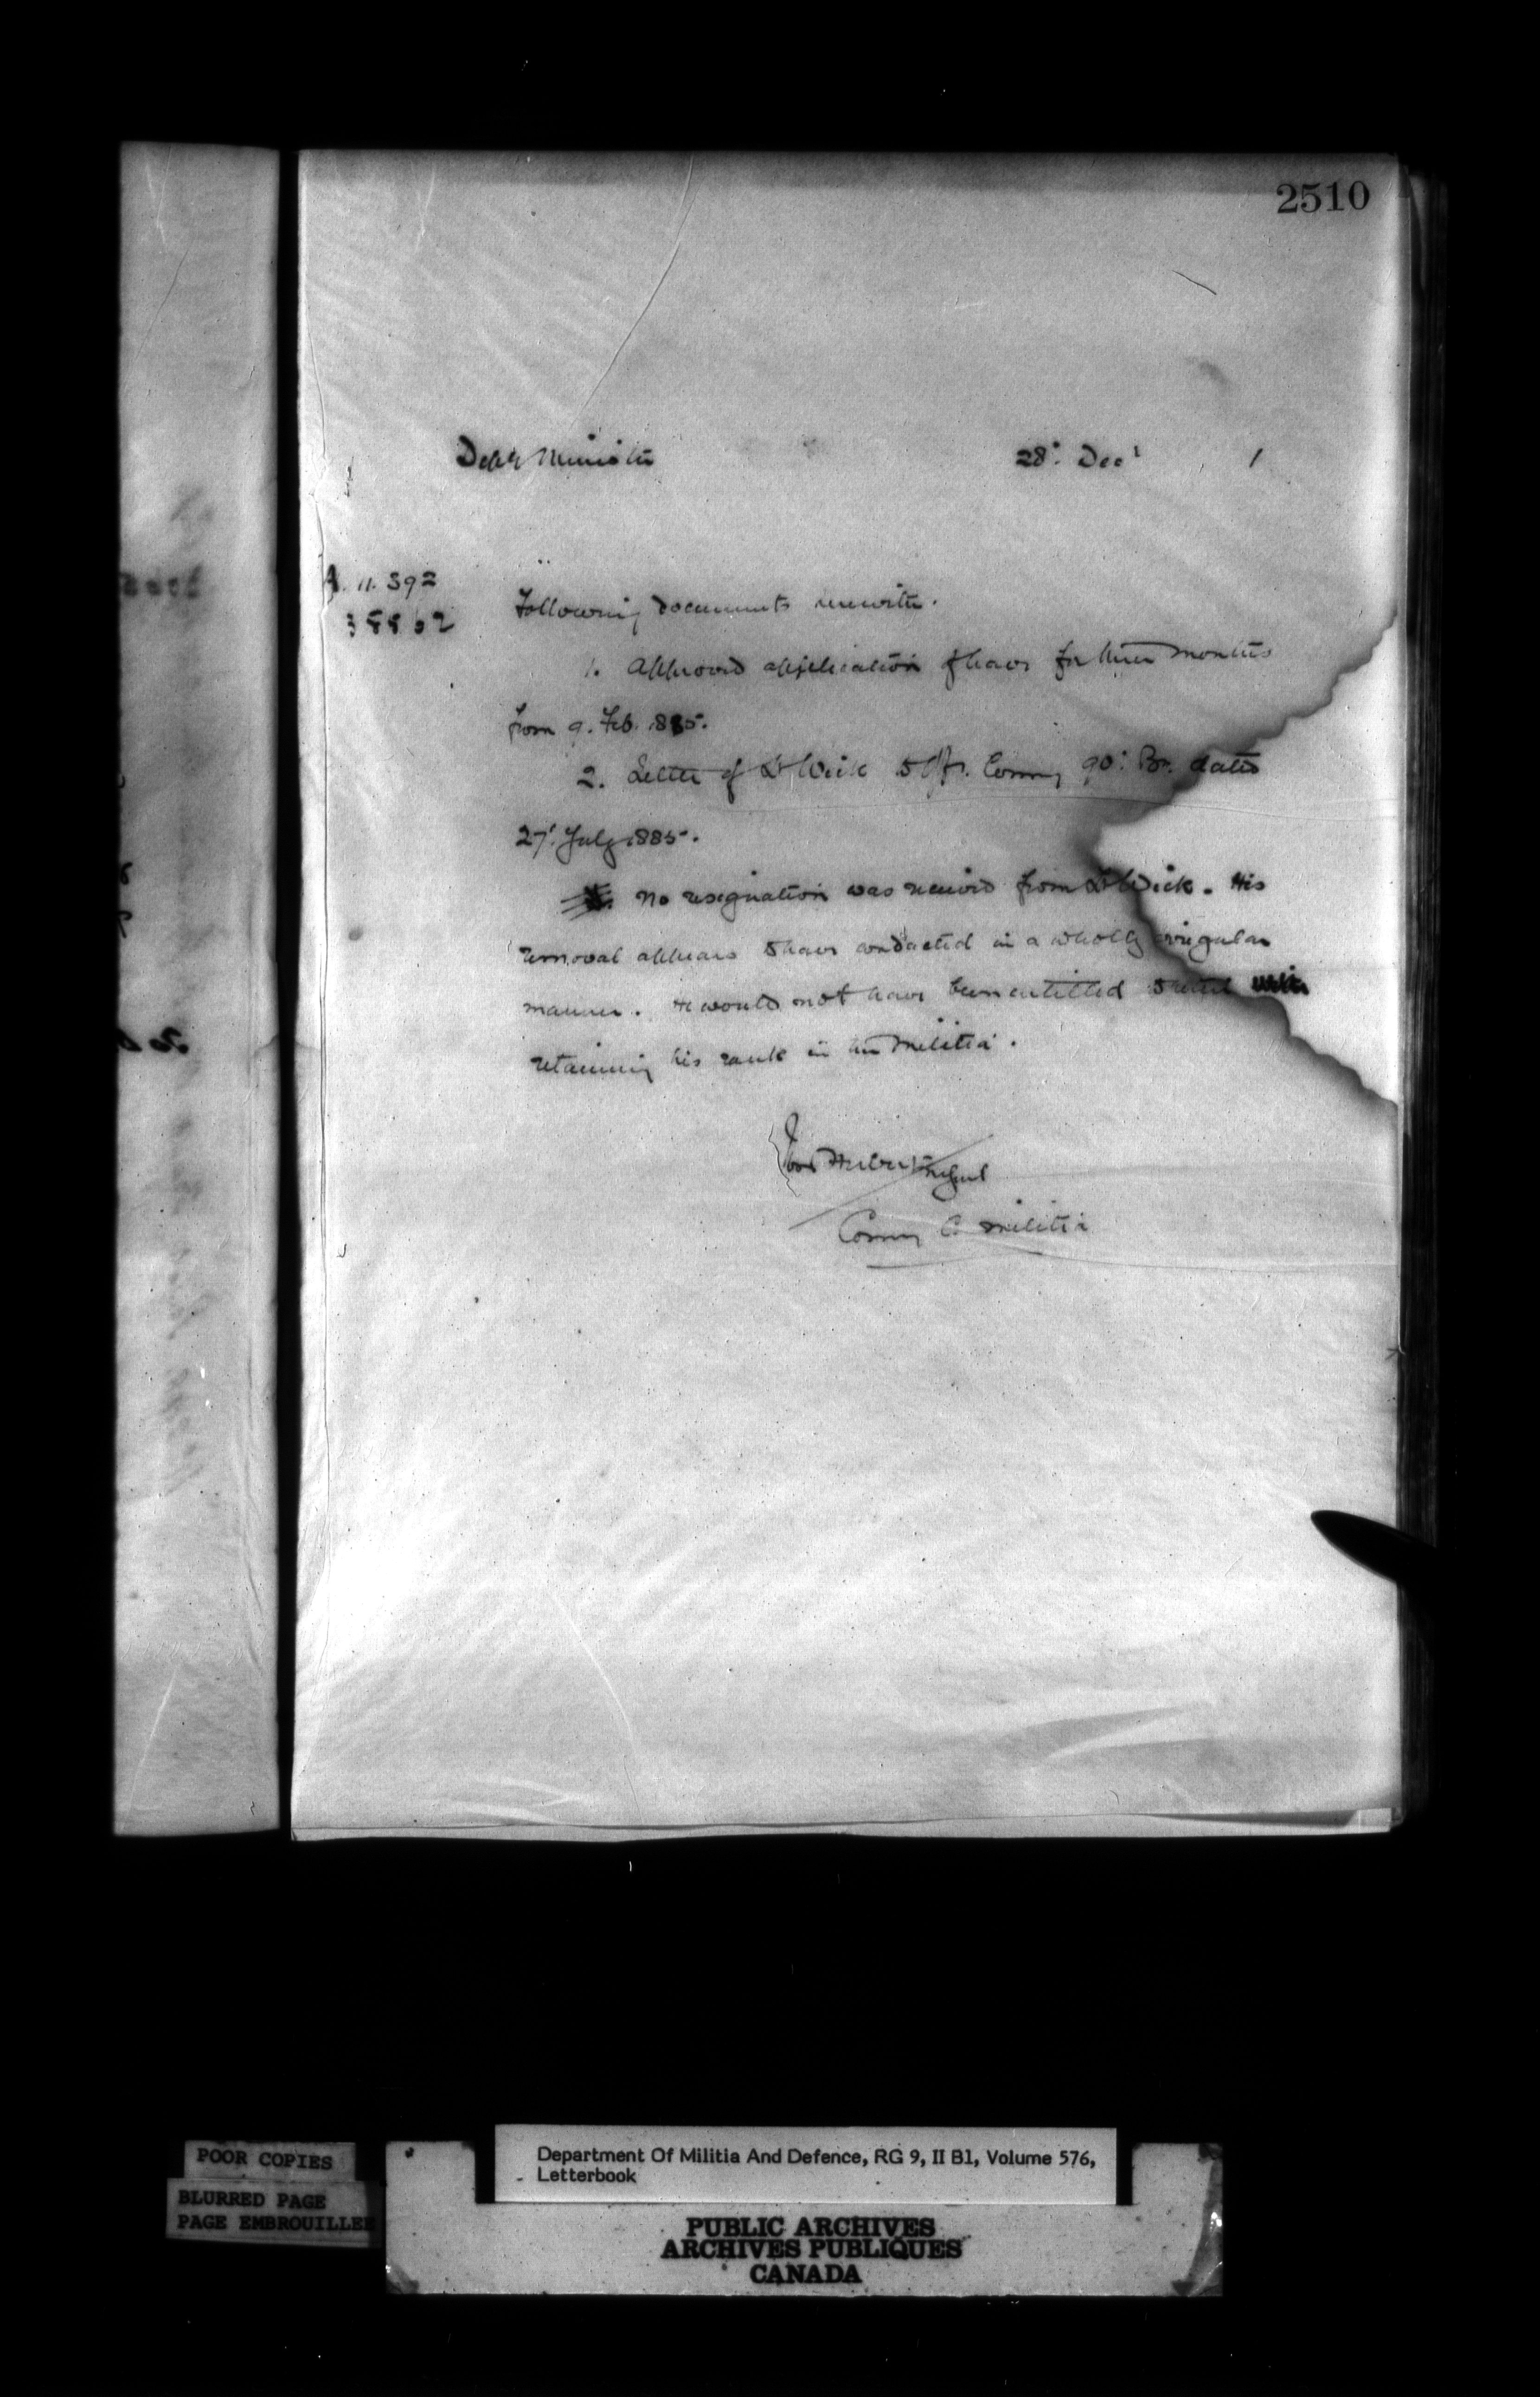 2510
Depy Minister 28th Decr 1
A. 11.392
38862
Following documents herewith.
1. Approved application of leave for three months
from 9. Feb. 1885.
2. Letter of Lt Wick to Offr. Commg 90th Bn. dated
27th July 1885.
No resignation was received from Lt Wick. His
removal appears to have conducted in a wholly irregular
manner. He would not have been entitled to retire
retaining his rank in the Militia.
Commg C. Militia
POOR COPIES
BLURRED PAGE
PAGE EMBROUILLEE
Department Of Militia And Defence, RG 9, II B1, Volume 576,
Letterbook
PUBLIC ARCHIVES
ARCHIVES PUBLIQUES
CANADA